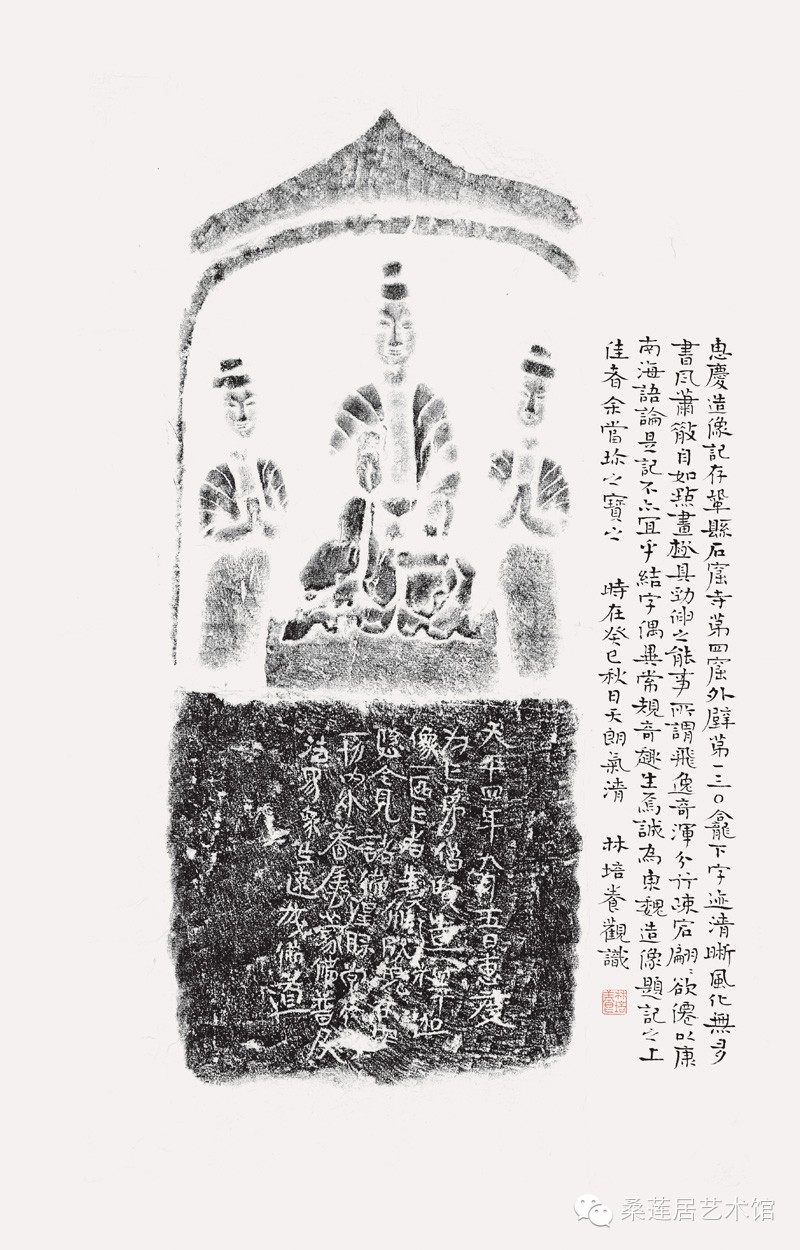 惠慶造像記存鞏縣石窟寺第四窟外壁第一三〇龕下字迹清晰風化無多
書風蕭散自如點畫極具勁伸之能事所謂飛逸奇渾分行疎宕翩翩欲僊以康
南海語論是記不亦宜乎結字偶異常規奇趣生焉誠為東魏造像題記之上
佳者余當珍之寶之 時在癸巳秋日天朗氣清 林培養觀識
天平四年 五日惠慶
為亡弟僧 造
像一區亡者生
念見諸佛
內外眷屬
法界眾生速成佛道
桑莲居艺术馆